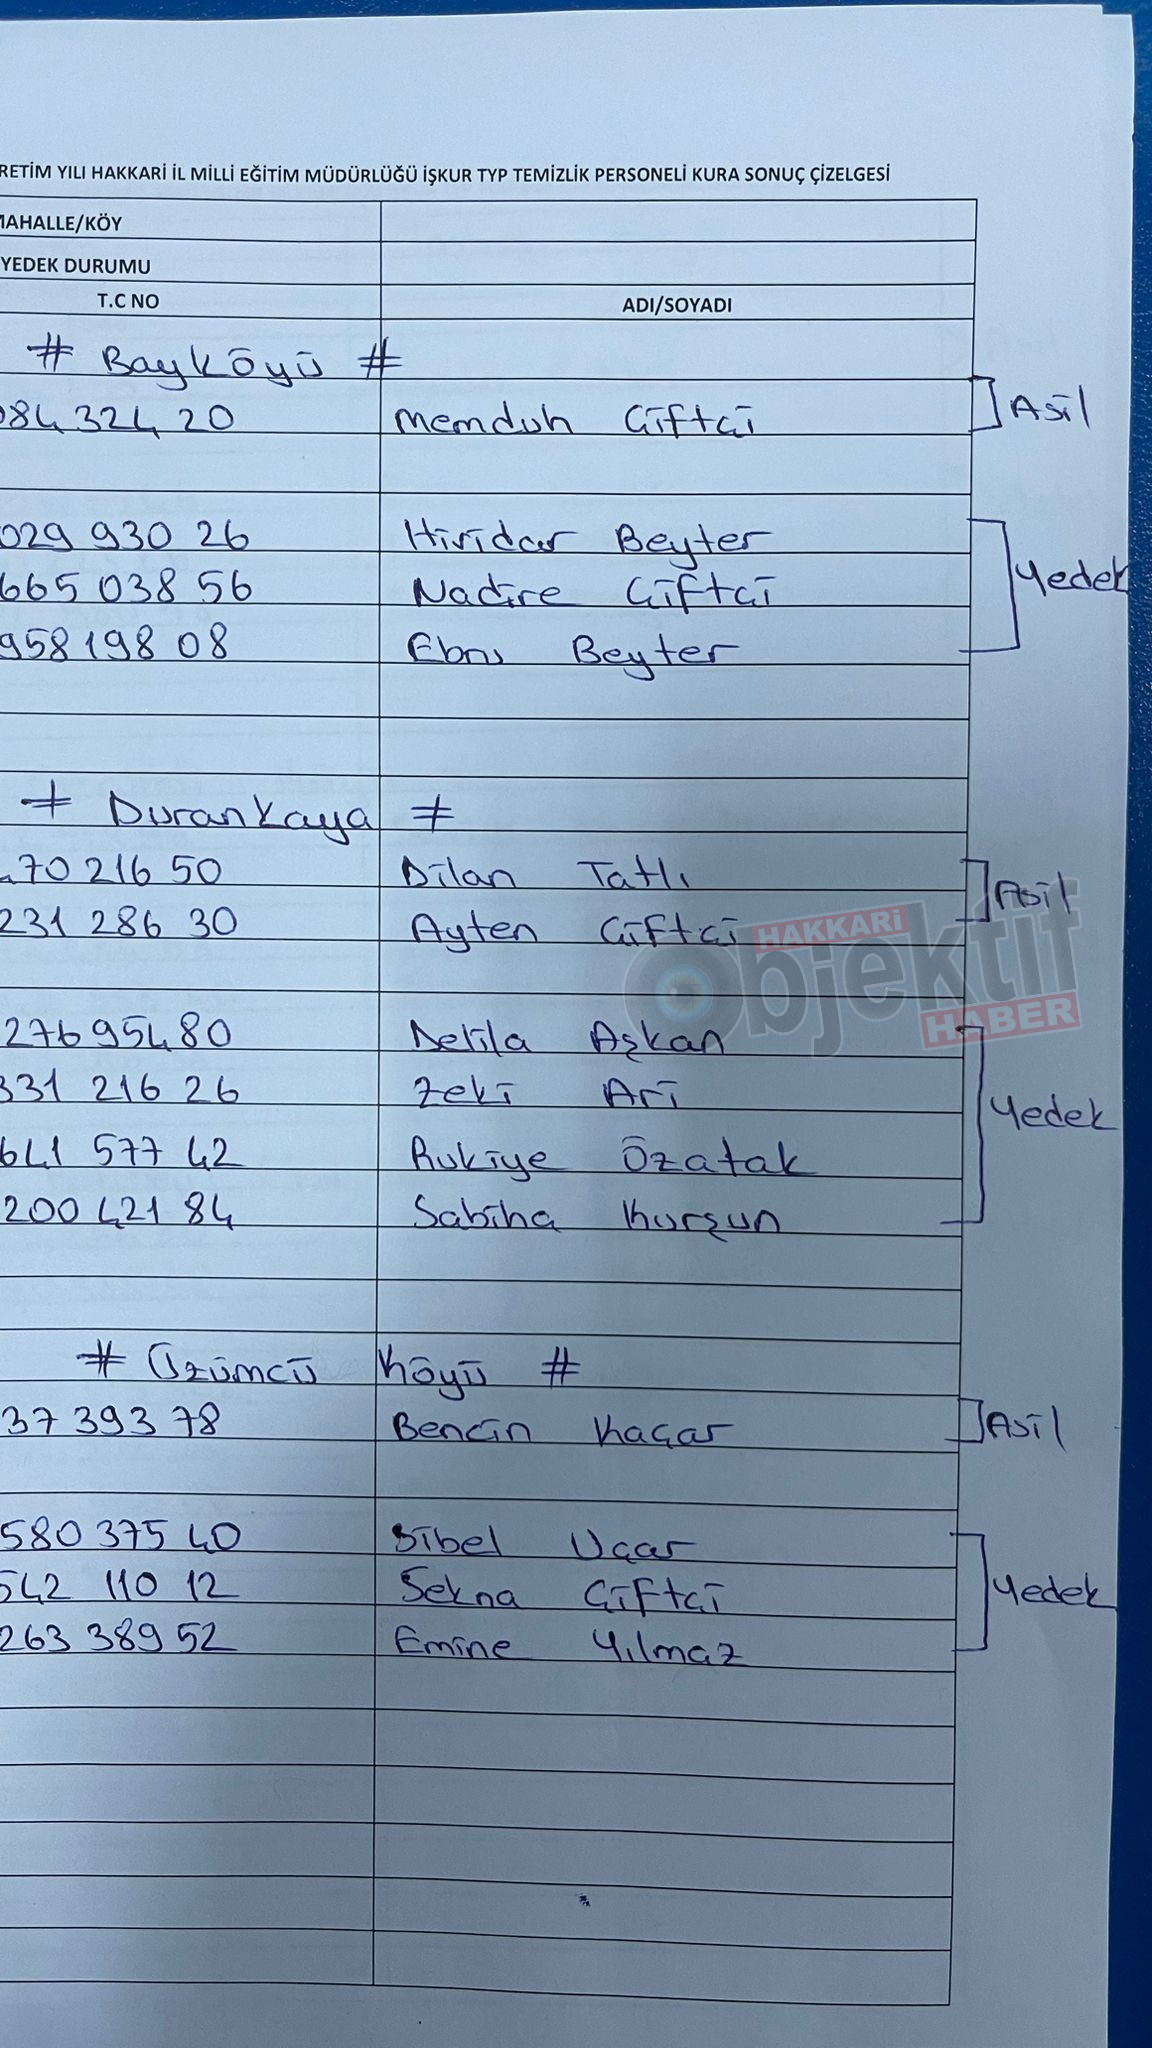 RETİM YILI HAKKARİ İL MİLLİ EĞİTİM MÜDÜRLÜĞÜ İŞKUR TYP TEMİZLİK PERSONELİ KURA SONUÇ ÇİZELGESİ
MAHALLE/KÖY
YEDEK DURUMU
T.C NO ADI/SOYADI
# Bayköyü #
084 324 20 Memduh Çiftçi Asil
029 930 26 Hividar Beyter
665 038 56 Nadire Çiftçi Yedek
958 198 08 Ebru Beyter
# Durankaya #
70 216 50 Dilan Tatlı Asil
231 286 30 Ayten Çiftçi
HAKKARİ Objektif HABER
276 954 80 Delila Aşkan
331 216 26 Zeki Ari Yedek
641 577 42 Rukiye Özatak
200 421 84 Sabiha Kurşun
# Üzümcü Köyü #
37 393 78 Bencin Kaçar Asil
580 375 40 Sibel Uçar
542 110 12 Sekna Çiftçi Yedek
263 389 52 Emine Yılmaz